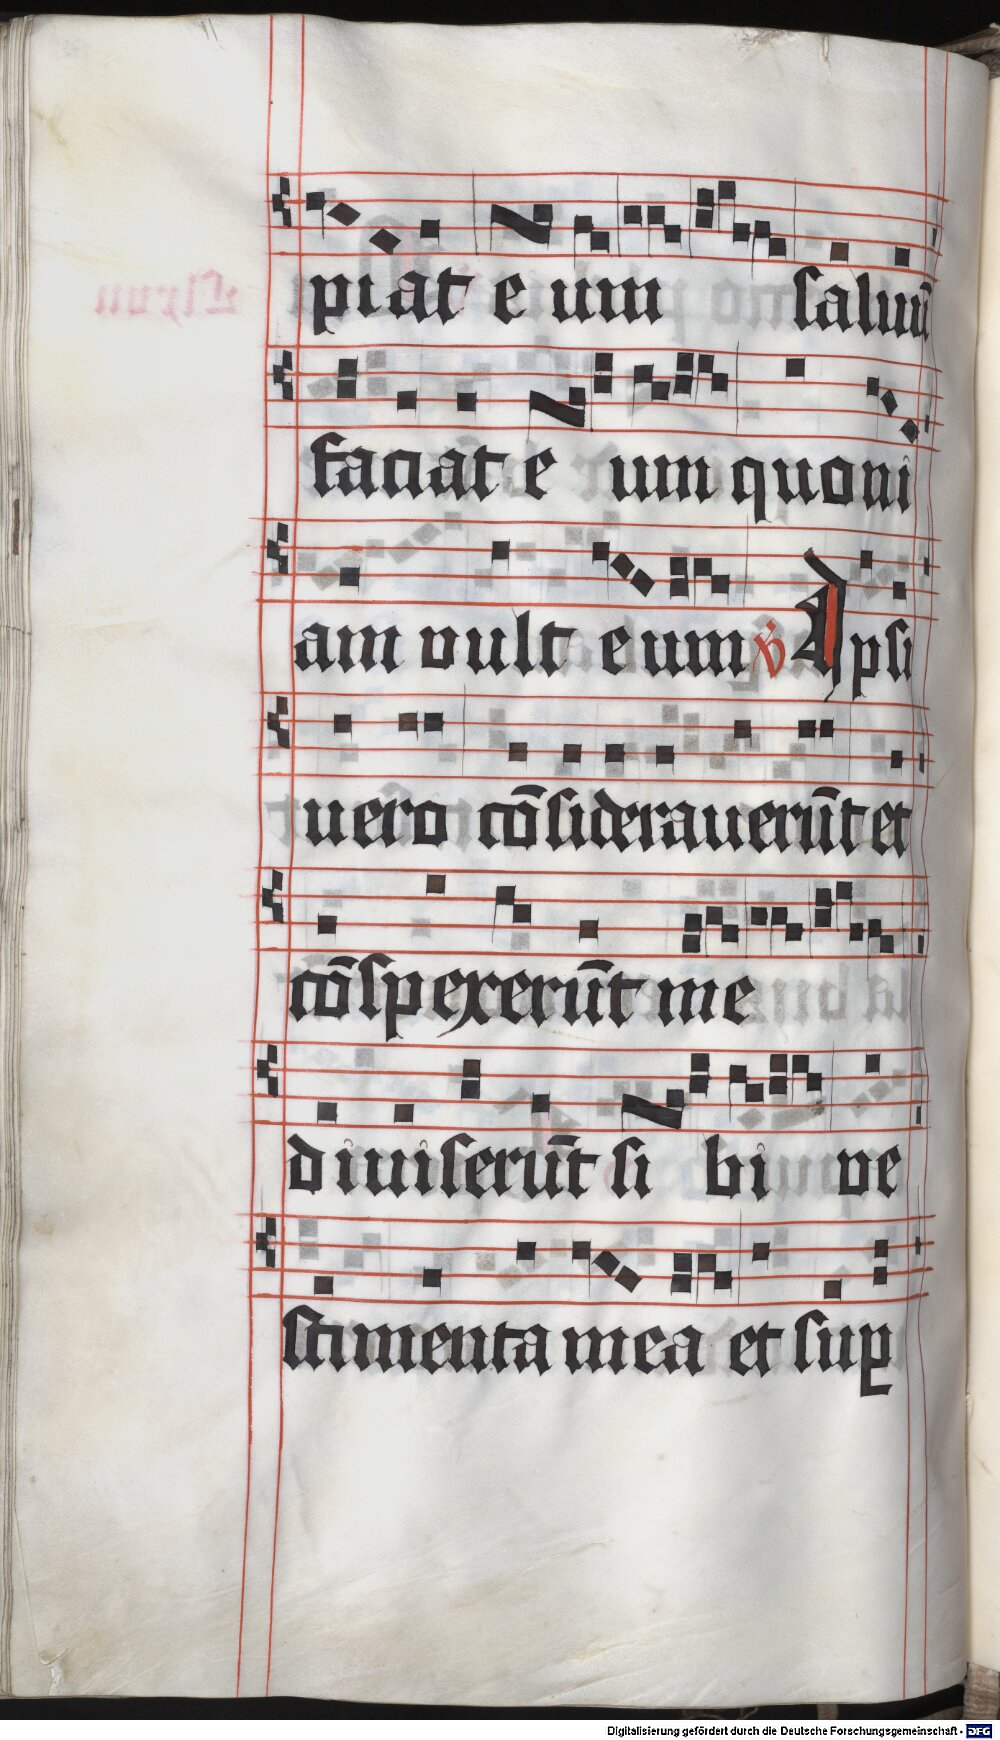 piat eum saluū
faciat e um quoni
am vult eum ℣ Ipsi
uero cōsiderauerūt et
cōspexerūt me
diuiserūt si bi ve
stimenta mea et suꝑ
Digitalisierung gefördert durch die Deutsche Forschungsgemeinschaft - DFG